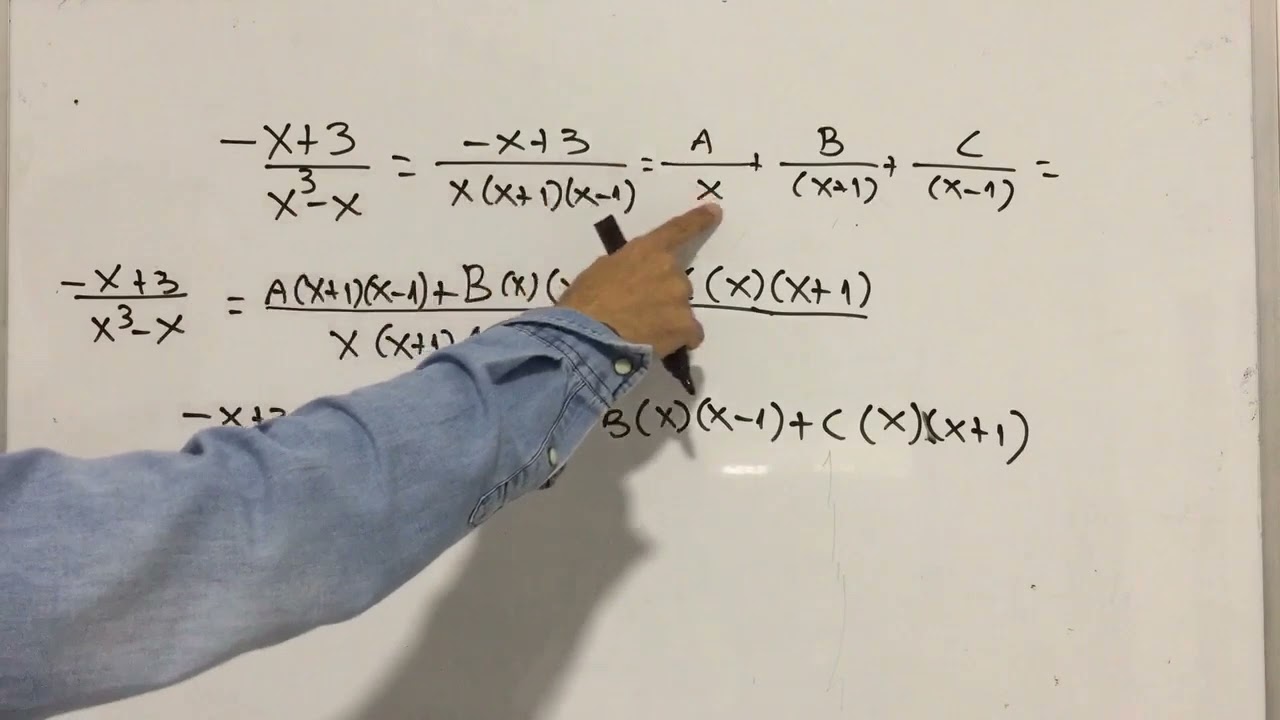 -x+3 / x³-x = -x+3 / x(x+1)(x-1) = A / x + B / (x+1) + C / (x-1) =
-x+3 / x³-x = A(x+1)(x-1)+B(x)( (x)(x+1) / x(x+1)
-x+ B(x)(x-1)+C(x)(x+1)